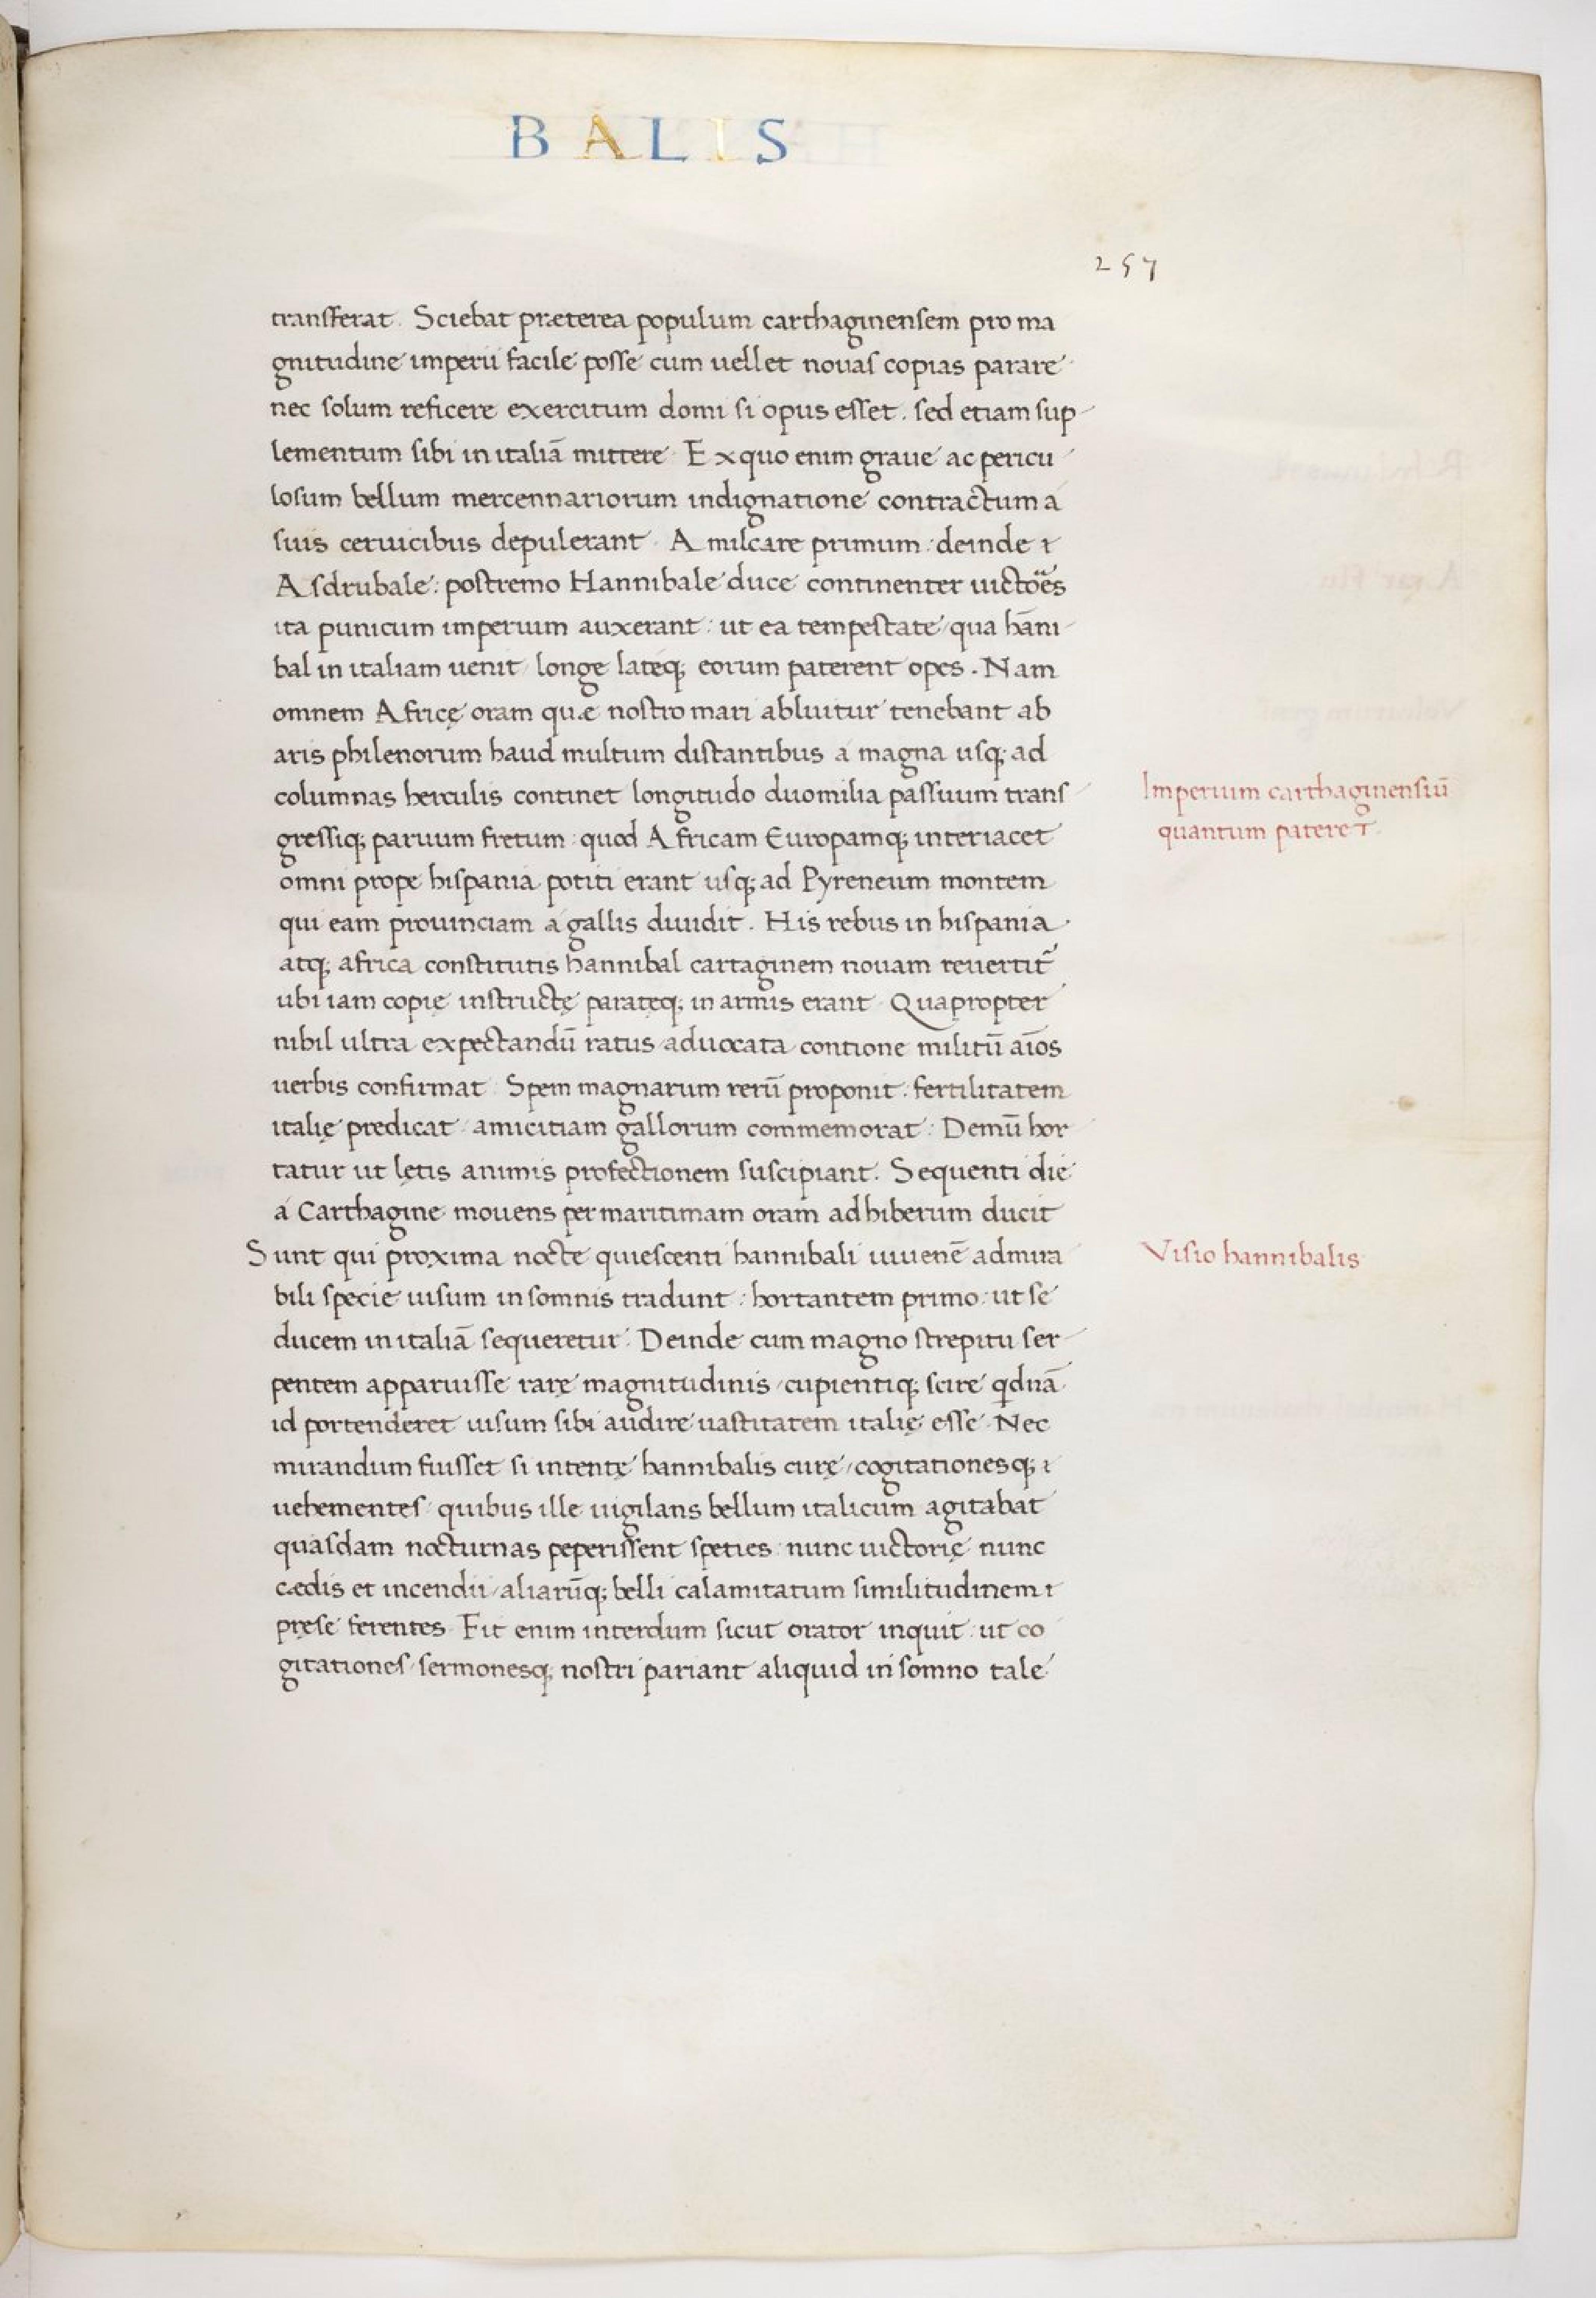 BALIS
257
transferat. Sciebat præterea populum carthaginensem pro ma
gnitudine imperii facile posse cum uellet nouas copias parare
nec solum reficere exercitum domi si opus esset. sed etiam sup-
lementum sibi in italiā mittere. Ex quo enim graue ac pericu
losum bellum mercennariorum indignatione contractum á
suis ceruicibus depulerant. Amilcare primum: deinde
Asdrubale: postremo Hannibale duce continenter uictoēs
ita punicum imperium auxerant: ut ea tempestate qua hāni
bal in italiam uenit longe lateq; eorum paterent opes. Nam
omnem Africę oram quæ nostro mari abluitur tenebant ab
aris philenorum haud multum distantibus á magna usq; ad
columnas herculis continet longitudo duomilia passuum trans
Imperium carthaginensiū
quantum pateret
gressiq; paruum fretum: quod Africam Europamq; interiacet
omni prope hispania potiti erant usq; ad Pyreneum montem
qui eam prouinciam á gallis diuidit. His rebus in hispania
atq; africa constitutis hannibal cartaginem nouam reuertit̄
ubi iam copię instructę paratęq; in armis erant. Quapropter
nihil ultra expectandū ratus aduocata contione militū aīos
uerbis confirmat. Spem magnarum rerū proponit: fertilitatem
italię predicat: amicitiam gallorum commemorat: Demū hor
tatur ut lętis animis profectionem suscipiant. Sequenti die
á Carthagine mouens per maritimam oram ad hiberum ducit
Sunt qui proxima nocte quiescenti hannibali iuuenē admira
Visio hannibalis
bili specie uisum in somnis tradunt: hortantem primo: ut se
ducem in italiā sequeretur: Deinde cum magno strepitu ser-
pentem apparuisse rarę magnitudinis, cupientiq; scire qdnā
id portenderet uisum sibi audire uastitatem italię esse. Nec
mirandum fuisset si intentę hannibalis curę, cogitationesq;
uehementes: quibus ille uigilans bellum italicum agitabat
quasdam nocturnas peperissent speties: nunc uictorię nunc
cædis et incendii, aliarūq; belli calamitatum similitudinem
pręse ferentes. Fit enim interdum sicut orator inquit: ut co
gitationes sermonesq; nostri pariant aliquid in somno tale